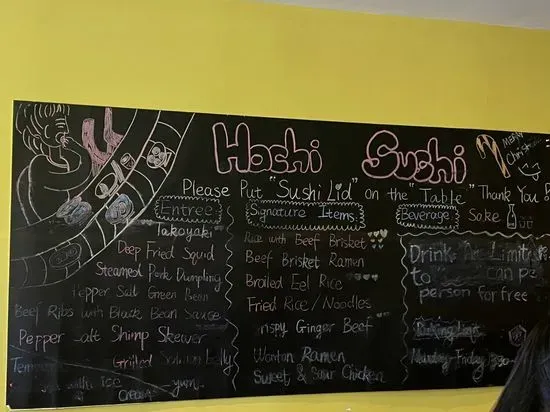 Hochi Sushi
MERRY
Christ
Please Put "Sushi Lid" on the "Table" Thank You
Entree
Takoyaki
Deep Fried Squid
Steamed Pork Dumpling
Pepper Salt Green Bean
Beef Ribs with Black Bean Sauce
Pepper Salt Shimp Skewer
Grilled Salmon belly
with ice
Signature Items
Rice with Beef Brisket
Beef Brisket Ramen
Broiled Eel Rice
Fried Rice/Noodles
Crispy Ginger Beef
Wonton Ramen
Sweet & Sour Chicken
Beverage
Sake
Drinks Are Limited
to can pe
person for free
Parking Limit
Monday-Friday